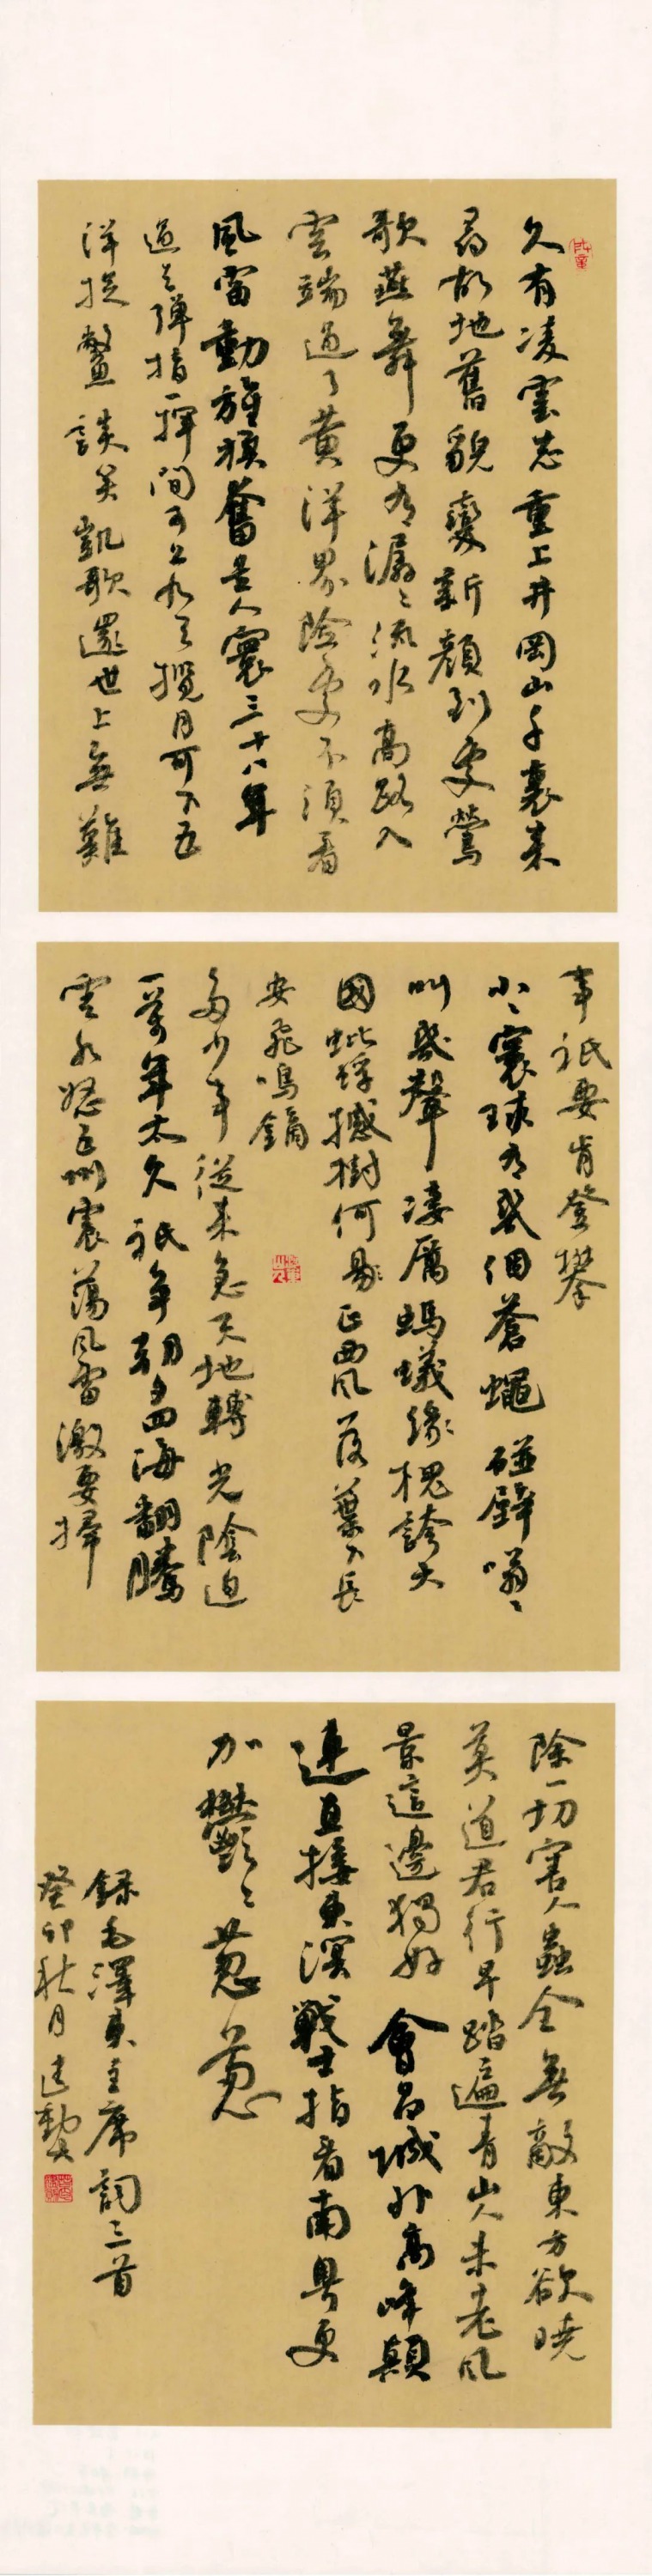 久有凌雲志重上井岡山千裏来
尋故地舊貌變新顏到處鶯
歌燕舞更有潺潺流水高路入
雲端過了黄洋界險處不須看
風雷動旌旗奮是人寰三十八年
過去彈指一揮間可上九天攬月可下五
洋捉鱉談笑凱歌還世上無難
事祇要肯登攀
小小寰球有幾個蒼蠅碰壁嗡嗡
叫幾聲凄厲螞蟻緣槐誇大
國蚍蜉撼樹何易正西風落葉下長
安飛鳴鏑
多少事從来急天地轉光陰迫
一萬年太久祇争朝夕四海翻騰
雲水怒五洲震蕩風雷激要掃
除一切害人蟲全無敵東方欲曉
莫道君行早踏遍青山人未老風
景這邊獨好會昌城外高峰顛
連直接東溟戰士指看南粤更
加鬱鬱葱葱
録毛澤東主席詞三首
癸卯秋月